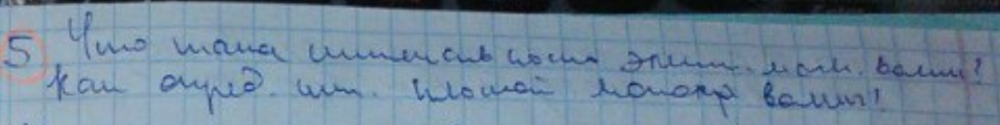 5 Что така интенсивность элект. магн. волны?
Как опред. инт. плоской монохр волны?